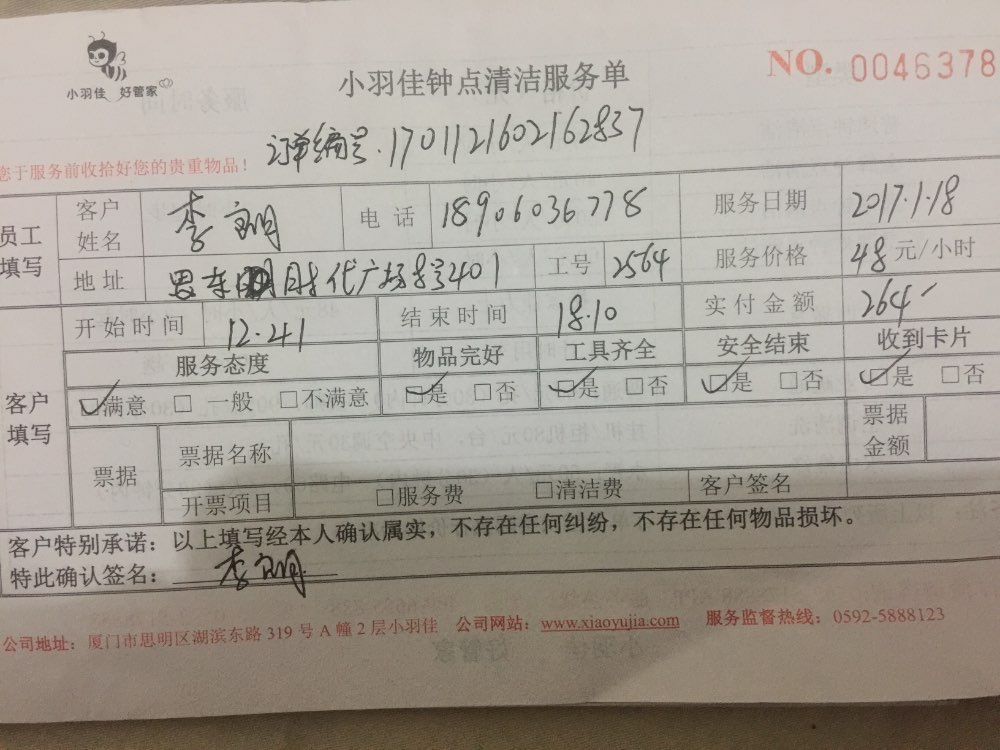 小羽佳 好管家
小羽佳钟点清洁服务单
NO. 0046378
订单编号.1701121602162837
您于服务前收拾好您的贵重物品！
员工填写
客户姓名 李 电话 18906036778 服务日期 2017.1.18
地址 胜代广场 401 工号 2564 服务价格 48 元/小时
客户填写
开始时间 12.41 结束时间 18.10 实付金额 264
服务态度 物品完好 工具齐全 安全结束 收到卡片
☑满意 □一般 □不满意 ☑是 □否 ☑是 □否 ☑是 □否 ☑是 □否
票据 票据名称 票据金额
开票项目 □服务费 □清洁费 客户签名
客户特别承诺：以上填写经本人确认属实，不存在任何纠纷，不存在任何物品损坏。
特此确认签名： 李
公司地址：厦门市思明区湖滨东路 319 号 A 幢 2 层小羽佳 公司网站：www.xiaoyujia.com 服务监督热线：0592-5888123